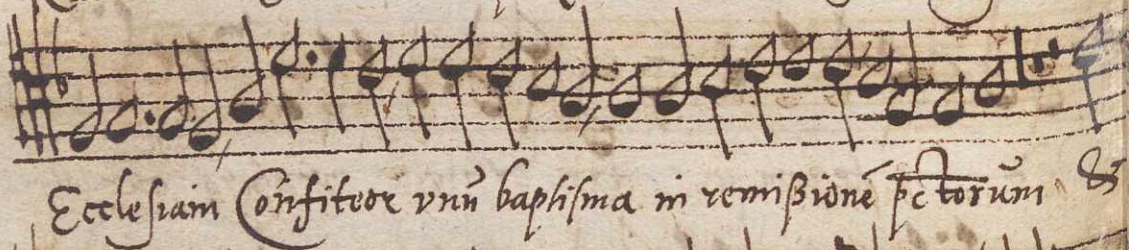 Ecclesiam Confiteor vnū baptisma in remißionē pctorum &